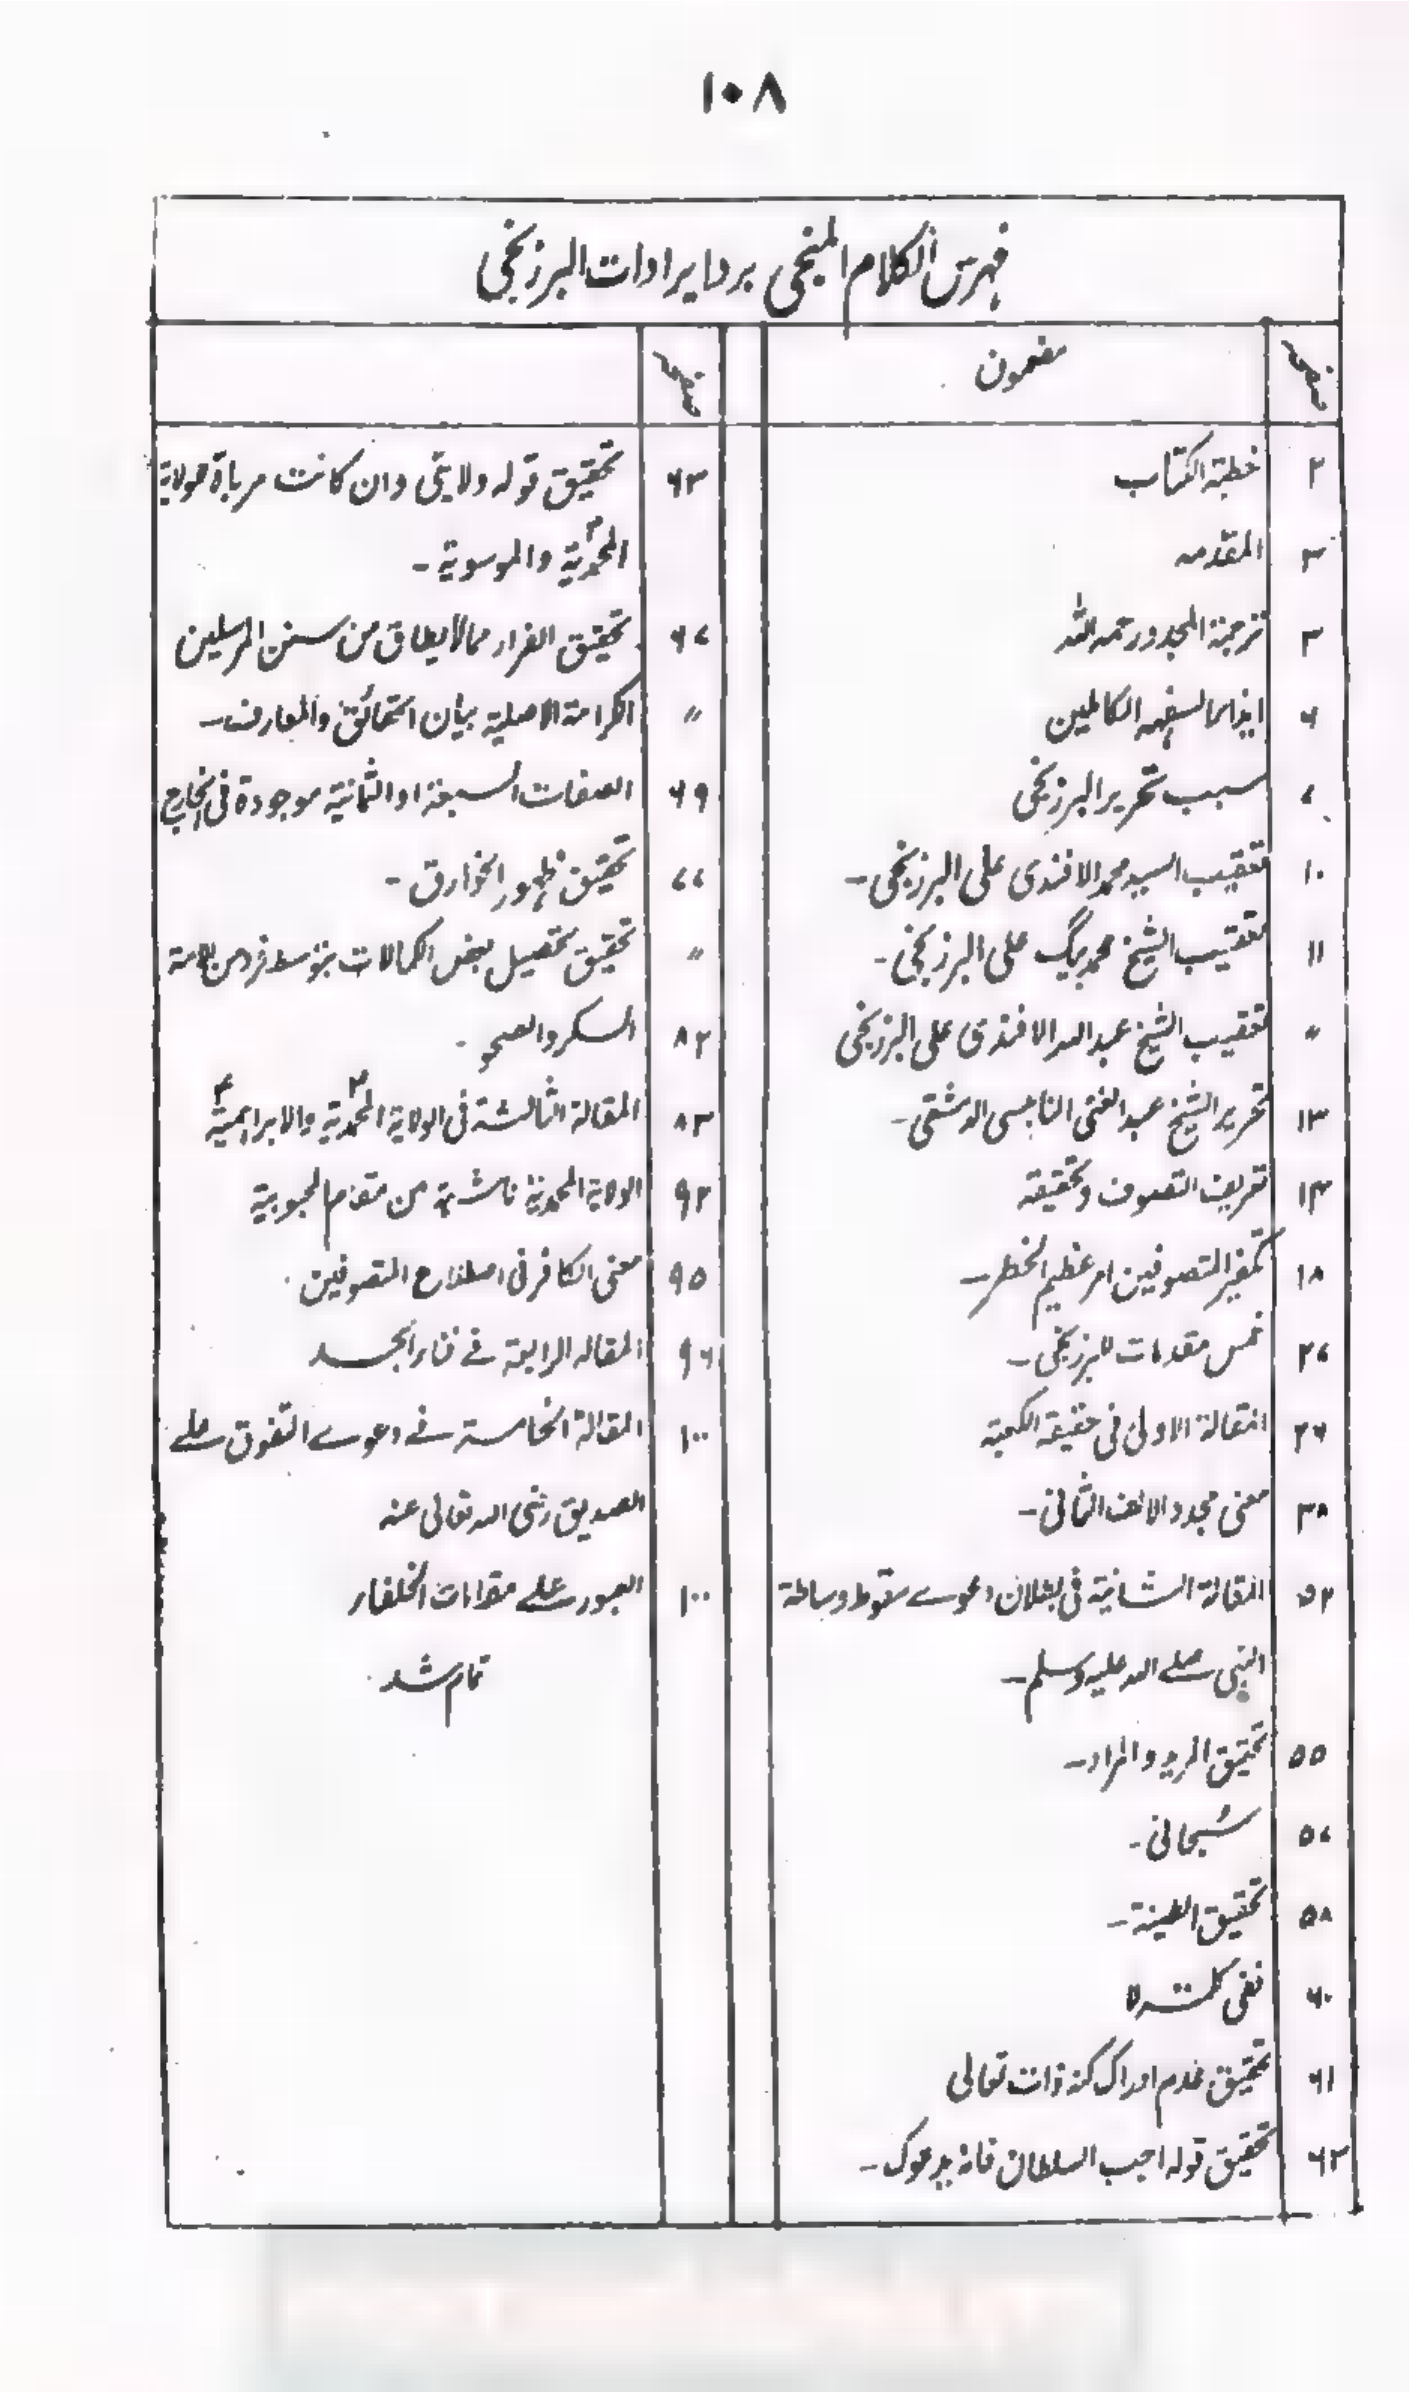 ١٠٨
فہرس الکلام المنجی برد ایرادات البرزنجی
صفحہ مضمون
۲ خطبۃ الکتاب
۳ المقدمہ
۳ ترجمۃ المجدد رحمہ اللہ
۶ ایذاء السفہہ الکاملین
۷ سبب تحریر البرزنجی
۱۰ تعقیب السید محمد الافندی علی البرزنجی۔
۱۱ تعقیب الشیخ محمد بیگ علی البرزنجی۔
〃 تعقیب الشیخ عبد اللہ الافندی علی البرزنجی
۱۳ تحریر الشیخ عبد الغنی النابلسی الدمشقی۔
۱۴ تعریف التصوف وتحقیقہ
۱۸ تکفیر المتصوفین امر عظیم الخطر۔
۲۷ خمس مقدمات للبرزنجی۔
۲۶ المقالۃ الاولی فی حقیقۃ الکعبۃ
۳۸ معنی مجدد الالف الثانی۔
۵۲ المقالۃ الثانیۃ فی بطلان دعوے سقوط وساطۃ
النبی صلے اللہ علیہ وسلم۔
۵۵ تحقیق المرید والمراد۔
۵۷ سُبحانی۔
۵۸ تحقیق الطینۃ۔
۶۰ نفی کلمۃ لا
۶۱ تحقیق عدم ادراک کنہ ذات تعالی
۶۲ تحقیق قولہ اجیب السلطان فانہ یدعوک۔
صفحہ
۶۳ تحقیق قولہ ولایتی وان کانت مرباۃ لولایۃ
المحمدیۃ والموسویۃ۔
۶۷ تحقیق الفرار مما لایطاق من سنن المرسلین
〃 الکرامۃ الاصلیۃ بیان الحقائق والمعارف۔
۶۹ الصفات السبعۃ او الثمانیۃ موجودۃ فی الخارج
۷۷ تحقیق ظہور الخوارق۔
〃 تحقیق تحصیل بعض الکمالات بتوسط فرد من الامۃ
۸۲ السکر والصحو۔
۸۳ المقالۃ الثالثۃ فی الولایۃ المحمدیۃ والابراہیمیۃ
۹۲ الولایۃ المحمدیۃ ناشئۃ من مقام المحبوبیۃ
۹۵ معنی الکافر فی اصطلاح المتصوفین۔
۹۶ المقالہ الرابعۃ فے فناء الجسد
۱۰۰ المقالۃ الخامسۃ فے دعوے التفوق علے
الصدیق رضی اللہ تعالی عنہ
۱۰۰ العبور علے مقامات الخلفاء
تمام شد